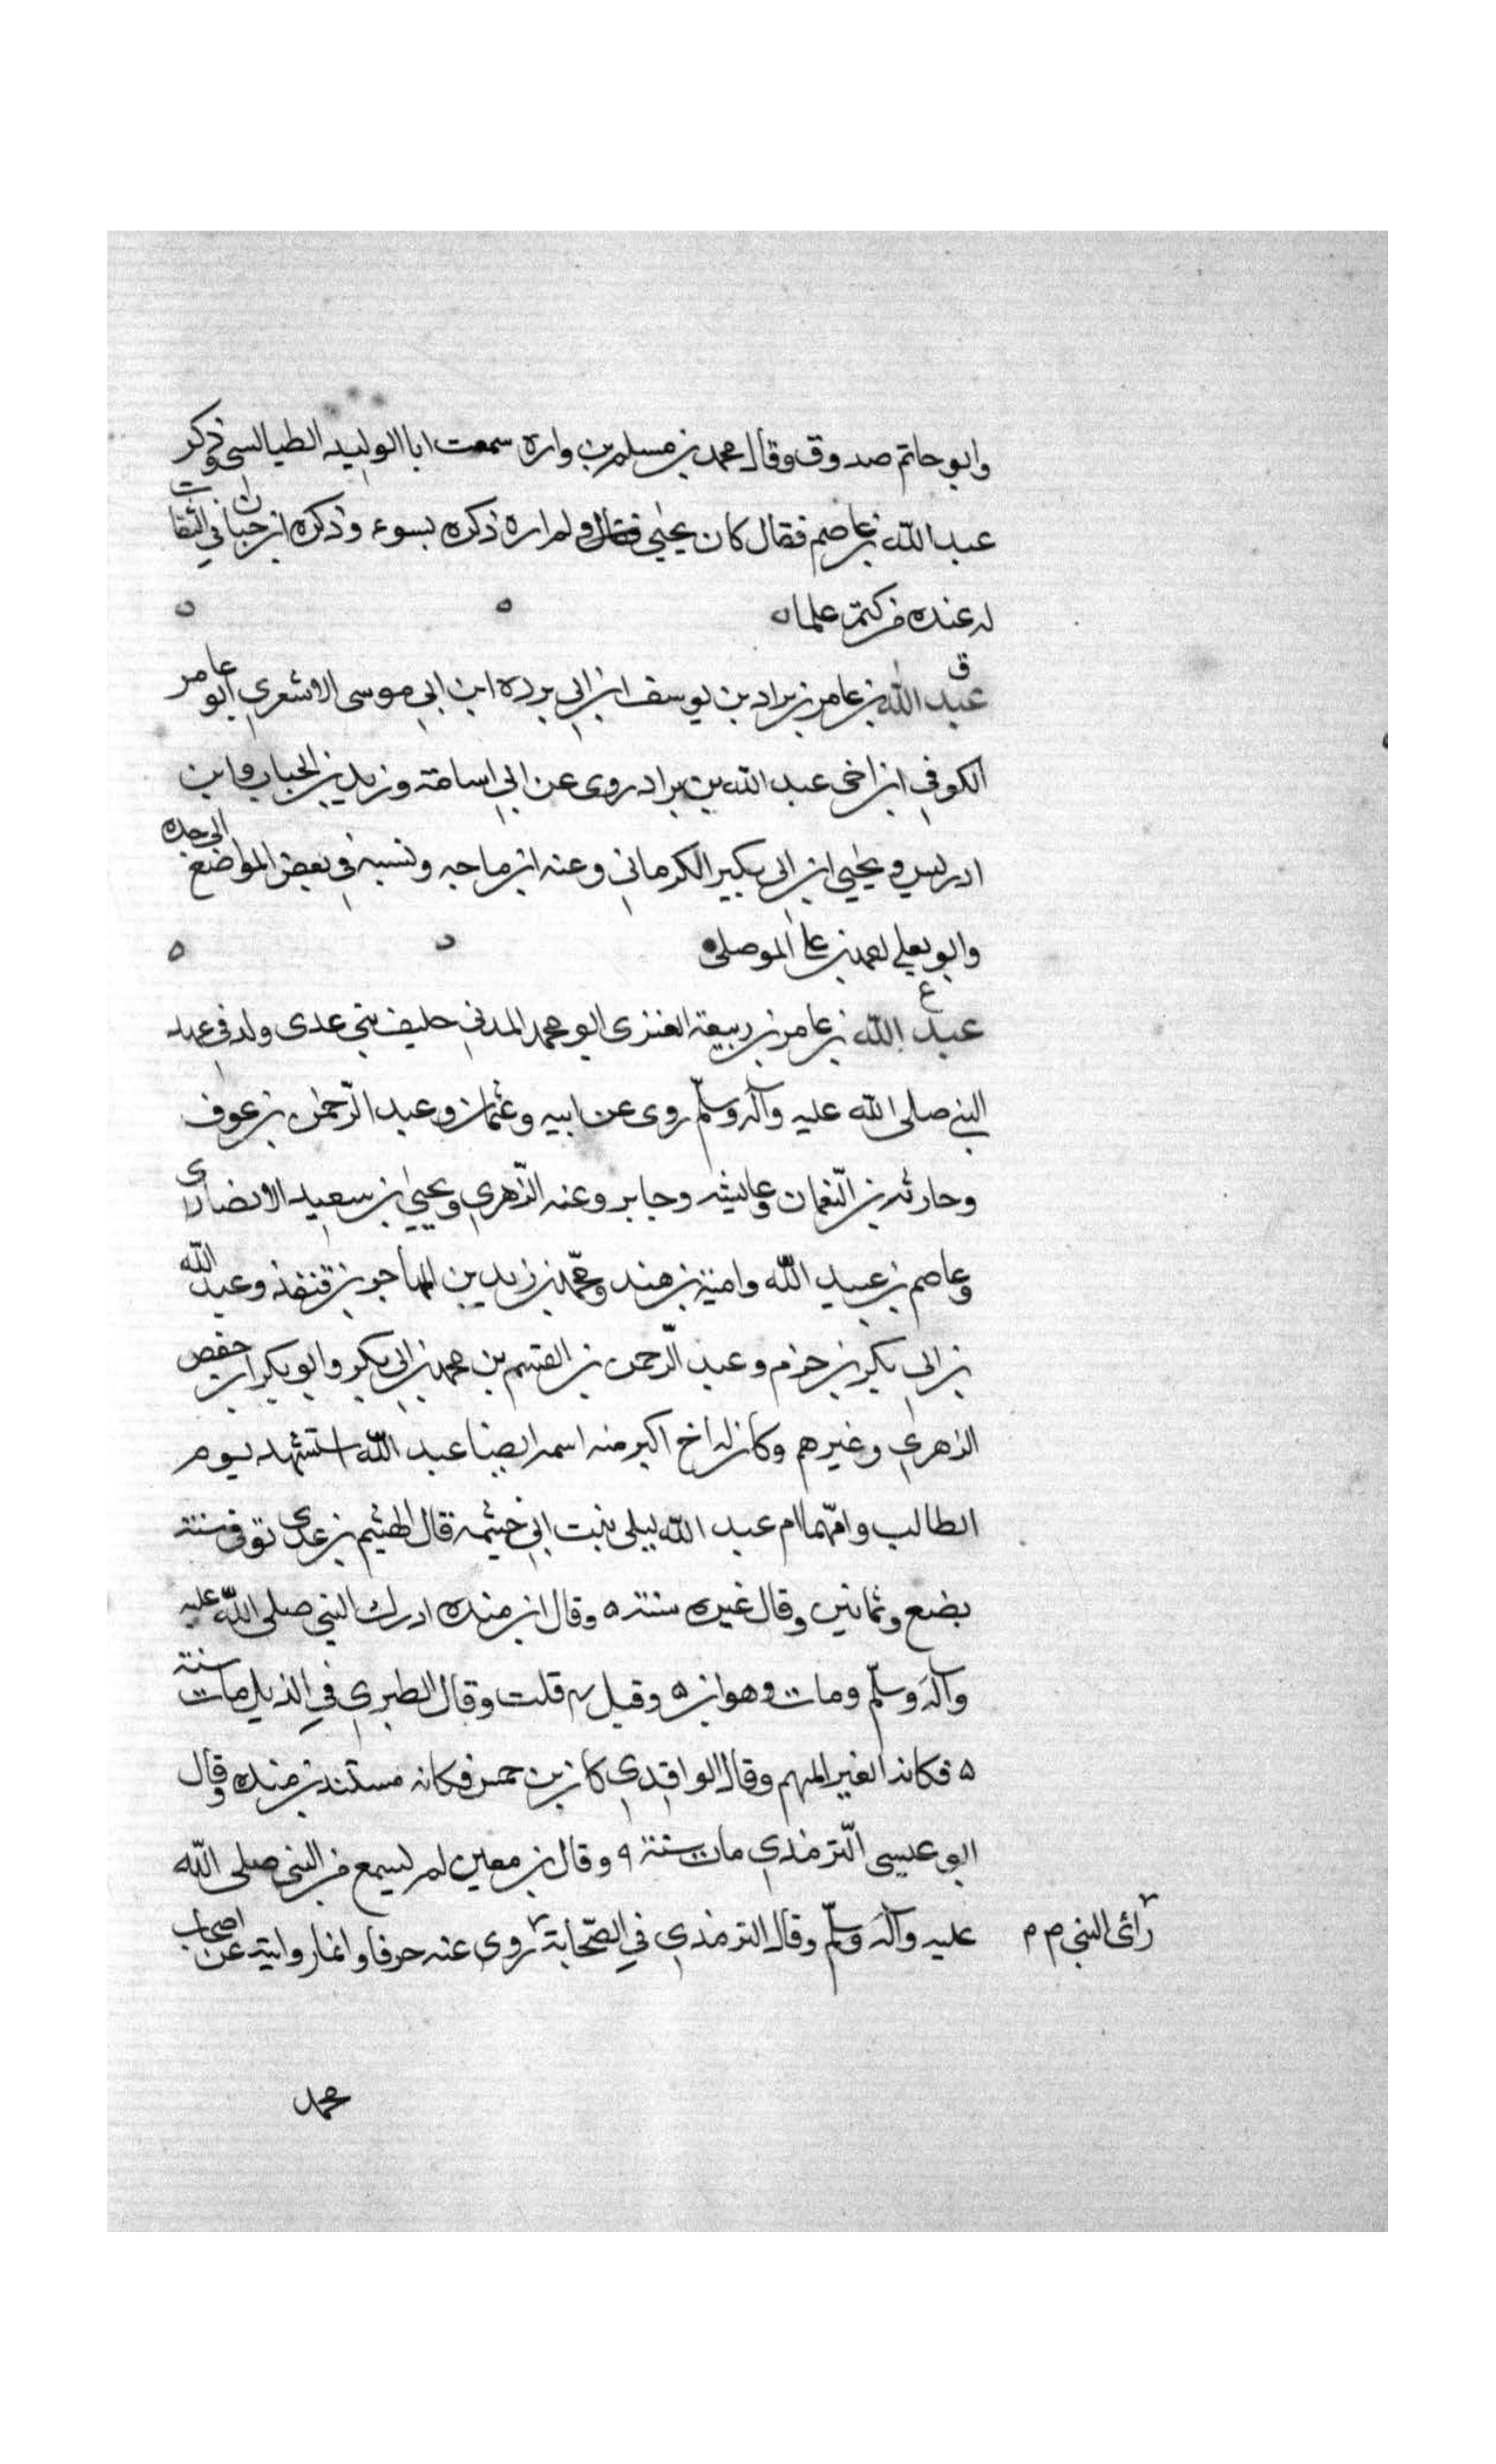 وابو حاتم صدوق وقال محمد بن مسلم بن واره سمعت ابا الوليد الطيالسي وذكر
عبد الله بن عاصم فقال كان يحيى فقال ولم اره ذكره بسوء وذكره ابن حبان في الثقات
له عنده من كتم علما ه
ق
عبد الله بن عامر بن براد بن يوسف ابن ابي برده ابن ابي موسى الاشعري ابو عامر
الكوفي ابن اخى عبد الله بن براد روى عن ابي اسامة وزيد بن الحباب وابن
ادريس ويحيى ابن ابى بكير الكرماني وعنه ابن ماجه ونسبه في بعض المواضع الى جده
وابو يعلي الموصلى
ع
عبد الله بن عامر بن ربيعة العنزى ابو محمد المدني حليف بني عدى ولد في عهد
النبي صلى الله عليه وآله وسلّم روى عن ابيه وعثمان وعبد الرّحمن بن عوف
وحارثه بن النّعمان وعايشه وجابر وعنه الزّهري ويحيى ابن سعيد الانصارى
وعاصم بن عبيد الله وامية بن هند ومحمّد بن زيد بن المهاجر بن قنفذ وعبد الله
بن ابى بكر بن حزم وعبد الرّحمن بن القسم بن محمد بن ابى بكر وابو بكر ابن حفص
الزهري وغيرهم وكان له اخ اكبر منه اسمه ايضا عبد الله استشهد يوم
الطالب وامّهما ام عبد الله ليلى بنت ابي خيثمه قال الهيثم بن عدى توفى سنة
بضع وثمانين وقال غيره سنة ٥ وقال ابن منده ادرك النبي صلى الله عليه
وآله وسلّم ومات وهو ابن ٥ وقيل ٤ قلت وقال الطبري في الذيل مات سنة
٥ فكانه الغير المبهم وقال الواقدي كان بن خمس فكانه مستند بن منده وقال
ابو عيسى التّرمذي مات سنة ٩ وقال بن معين لم يسمع من النبى صلى الله
عليه وآله وسلّم وقال الترمذي في الصّحابة روى عنه حرفا وانما روايته عن اصحاب
رأى النبى م م
محمد